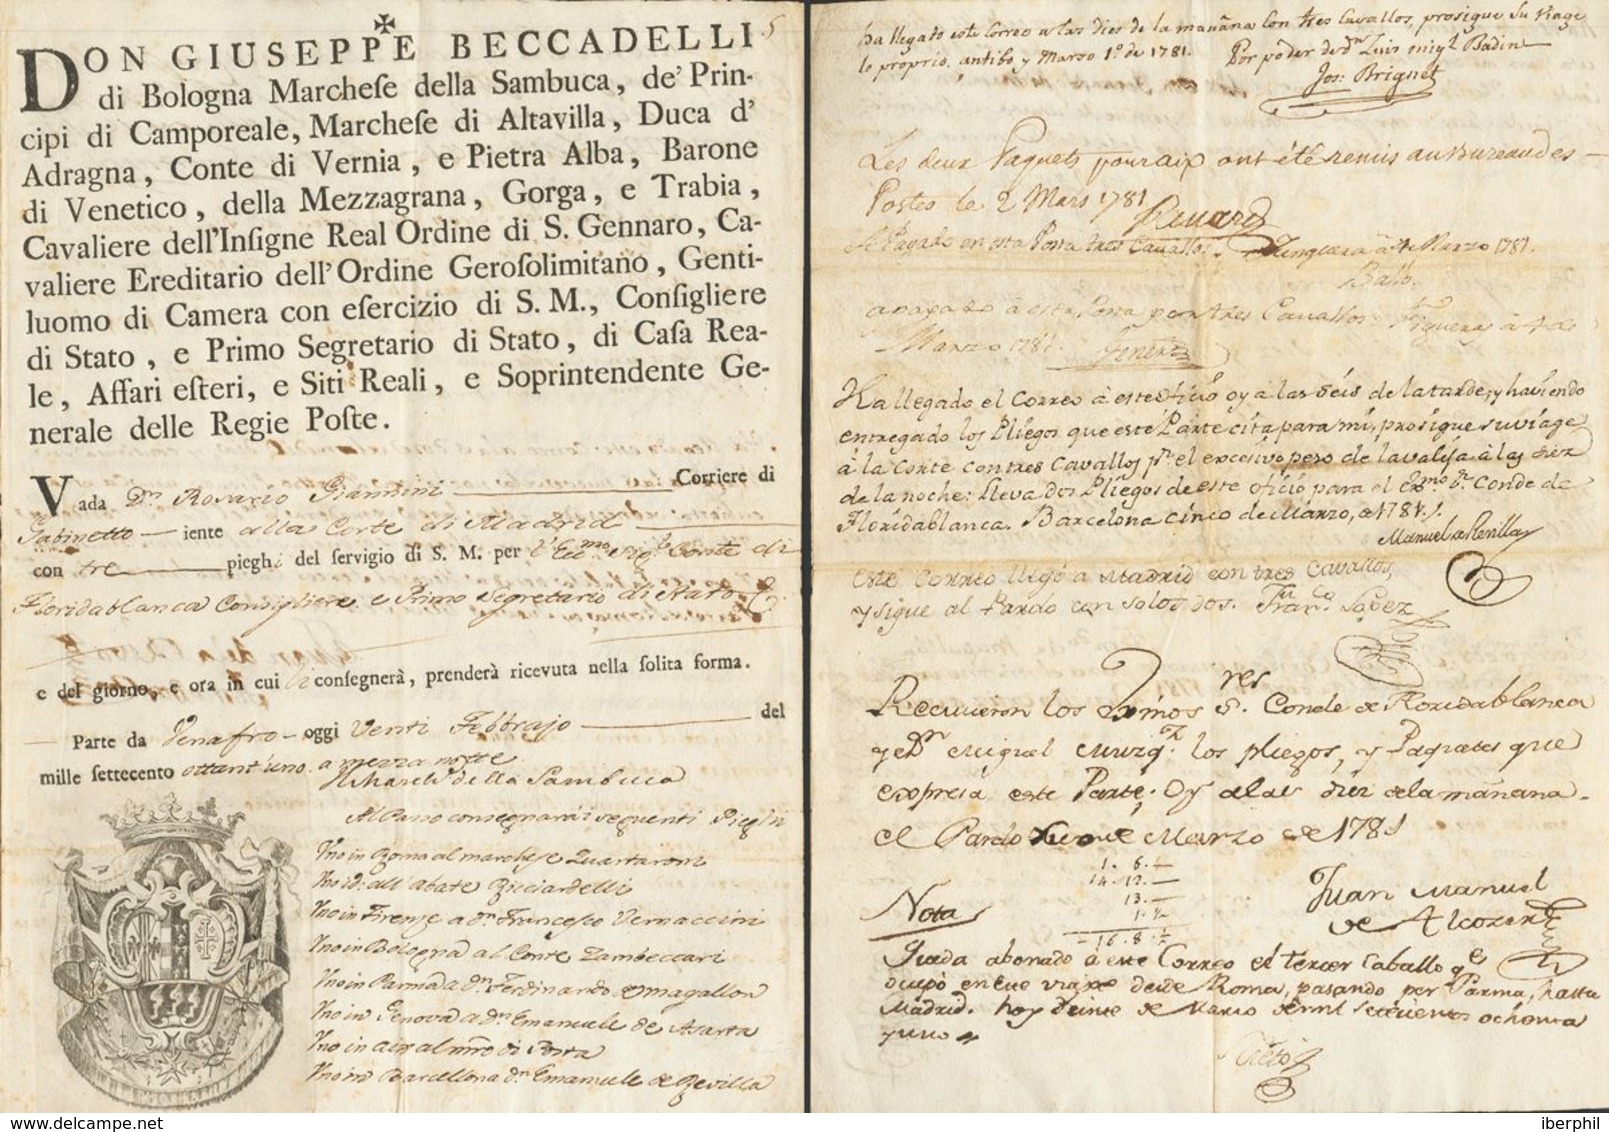 DON GIUSEPPE BECCADELLI 5
di Bologna Marcheſe della Sambuca, de' Prin-
cipi di Camporeale, Marcheſe di Altavilla, Duca d'
Adragna, Conte di Vernia, e Pietra Alba, Barone
di Venetico, della Mezzagrana, Gorga, e Trabia,
Cavaliere dell'Inſigne Real Ordine di S. Gennaro, Ca-
valiere Ereditario dell'Ordine Geroſolimitano, Genti-
luomo di Camera con eſercizio di S. M., Conſigliere
di Stato, e Primo Segretario di Stato, di Caſa Rea-
le, Affari eſteri, e Siti Reali, e Soprintendente Ge-
nerale delle Regie Poſte.
Vada Dn. Rosario Giannini Corriere di
Gabinetto iente alla Corte di Madrid
con tre pieghi del ſervigio di S. M. per l'Ecmo. Sigr. Conte di
Floridablanca Consigliere e Primo Segretario di Stato
e del giorno, e ora in cui li conſegnerà, prenderà ricevuta nella ſolita forma.
Parte da Venafro oggi Venti Febbrajo del
mille ſettecento ottant'uno a mezza notte
Il March. della Sambuca
Al Passo consegnarà i seguenti Pieghi
Uno in Roma al marchese Quartaroni
Uno id: all'Abate Ricciardelli
Uno in Firenze a Dn. Francesco Vernaccini
Uno in Bologna al Conte Zambeccari
Uno in Parma a Dn. Ferdinando Magallon
Uno in Genova a Dn. Emanuele de Asarta
Uno in Aix al mro di Posta
Uno in Barcellona Dn. Emanuele de Revilla
ha llegado este Correo a las dies de la mañana Con tres Cavallos, prosigue su viage
lo proprio. antibo y Marzo 1º. de 1781. Por poder de Dn. Luis migl. Badin
Jos: Brignét
Les deux Paquets pour aix ont été remis au Bureau des
Postes le 2 Mars 1781
Se Pagado en esta Posta tres Cavallos. Junquera à 4 Marzo 1781.
apagado à esta Posta por tres Cavallos Figueras à 4 de
Marzo 1781.
Ha llegado el Correo à este Oficio oy a las séis de la tarde; y haviendo
entregado los Pliegos que este Parte cita para mi, prosigue su viage
à la Corte con tres Cavallos pr. el excesivo peso de la valija à las diez
de la noche: lleva dos Pliegos de este oficio para el Exmo. Sr. Conde de
Floridablanca. Barcelona cinco de Marzo, de 1781.
Manuel de Revilla
este Correo llegó a Madrid con tres Cavallos,
y sigue al Pardo con solos dos. Franco. Lopez
Recivieron los Exmos Sres. Conde de Floridablanca
y Dn. Miguel Muzqz. los pliegos, y Paquetes que
expresa este Parte, Oy a las diez de la mañana.
el Pardo y nueve Marzo de 1781
1. 6.
14. 12.
13.
16. 8.
Juan Manuel
de Alcozer
Nota
Queda abonado à este Correo el tercer Caballo qe.
ocupó en su viaje desde Roma, pasando por Parma, hasta
Madrid. hoy veinte de Marzo de mil setecientos ochenta
y uno
Nieto
WWW.DELCAMPE.NET
iberphil